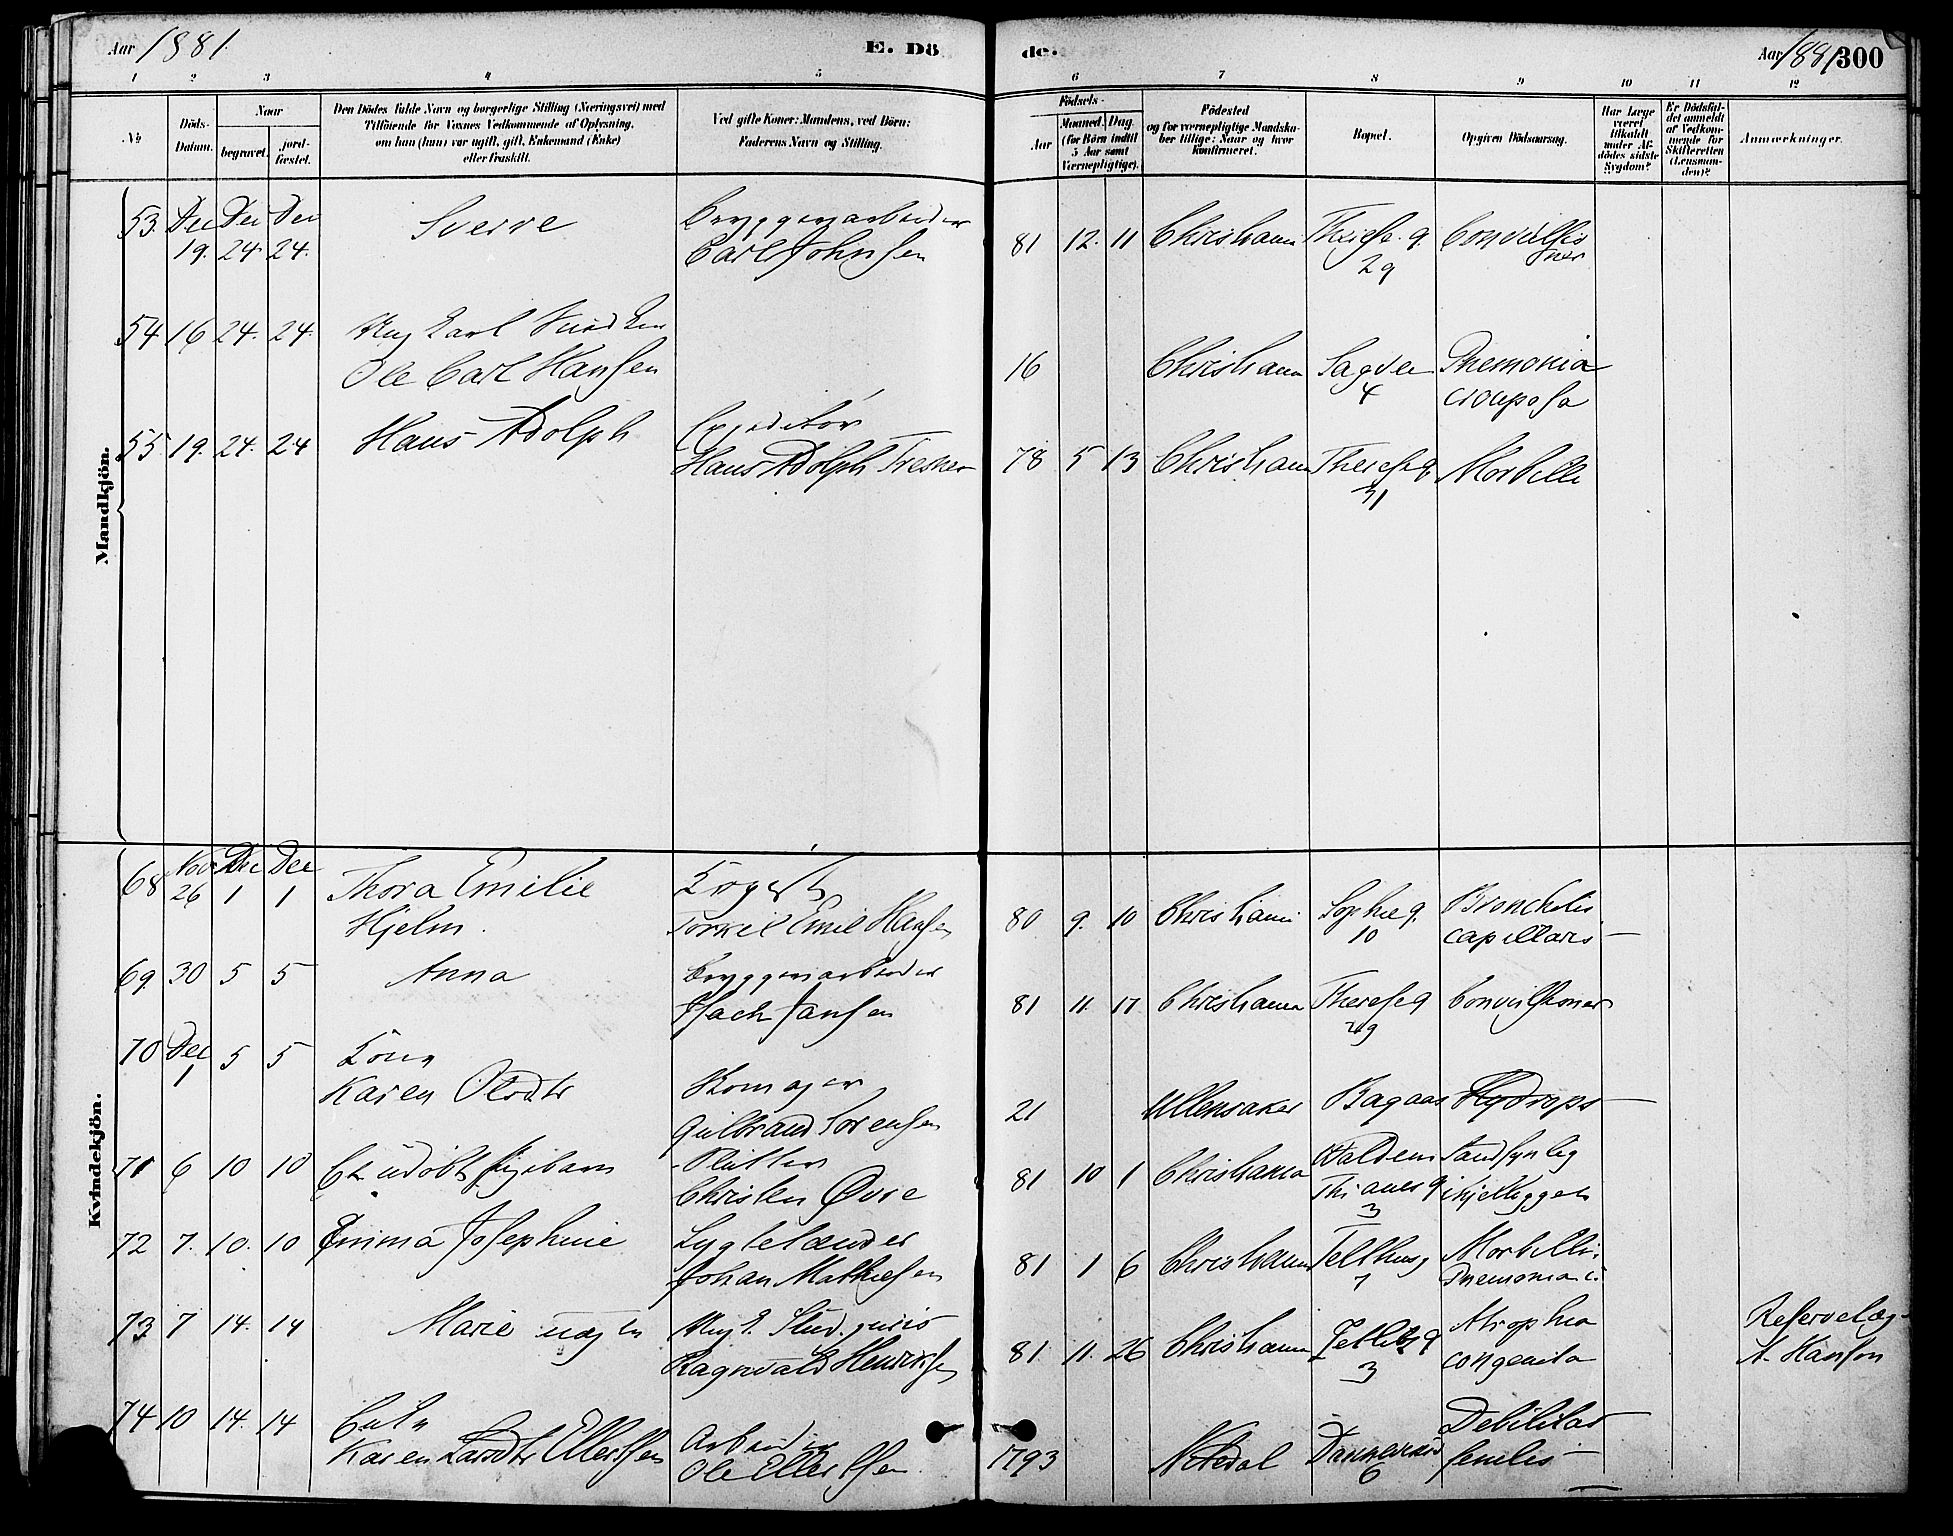 Aar 1881.
E. Dö
de.
Aar 1881 300
1 2 3 4 5 6 7 8 9 10 11 12
No
Döds-
Datum.
Naar
begravet.
jord-
fæstet.
Den Dödes fulde Navn og borgerlige Stilling (Næringsvei) med
Tilföiende for Voxnes Vedkommende af Oplysning,
om han (hun) var ugift, gift, Enkemand (Enke)
eller fraskilt.
Ved gifte Koner: Mandens, ved Börn:
Faderens Navn og Stilling.
Födsels-
Aar
Maaned. Dag.
(for Börn indtil
5 Aar samt
Værnepligtige).
Födested
og for værnepligtige Mandska-
ber tillige: Naar og hvor
konfirmeret.
Bopæl.
Opgiven Dödsaarsag.
Har Læge
været
tilkaldt
under Af-
dödes sidste
Sygdom?
Er Dödsfal-
det anmeldt
af Vedkom-
mende for
Skifteretten
(Lensman-
den)?
Anmærkninger.
Mandkjön.
53 Dec Dec Dec Sverre Bryggeriarbeider
19. 24 24. Carl Johnsen 81 12. 11 Christiania Therese g. 29 Convulsioner
54 16 24. 24. Ung Karl
Ole Carl Hansen 16 Christiania Sagvei 4 Pnemonia
crouposa
55 19. 24. 24 Hans Adolph Expeditör
Hans Adolph Fresker 78 5 13 Christiania Therese g. 31 Morbilli
Kvindekjön.
68 Nov Dec Dec
26 1 1 Thora Emilie
Hjelm. Torkel Emil Hansen 80 9. 10 Christiania Sophieg. 10 Bronchitis
capillaris
69 30 5 5 Anna Bryggeriarbeider
Isach Jansen 81 11. 17 Christiania Therese g 29 Convulsioner
70 Dec 5 5 Kone
1 Karen Olsdtr Skomager
Gulbrand Sorensen 21 Ullensaker Bagaas Hydrops
71 6 10 10 Et udöbt Pigebarn
Christen Øvre 81 10 1 Christiania Waldem
Thranes g 3 Sandsynlig
ihjelligget
72 7. 10. 10 Emma Josephine Lygtetænder
Johan Mathiesen 81 1 6 Christiania Telthusg 7 Morbilli.
Pnemonia
73 7 14. 14 Marie uægte Ungk. Stud. juris
Ragnvald Henriksen 81 11. 26 Christiania 3 Atrophia
congenita Reservelæge
A. Hanson
74 10 14. 14 Enke
Karen Larsdtr Ellertsen Arbeider
Ole Ellertsen. 1793 Nitedal Dannevirke 6 Debilitas
senilis